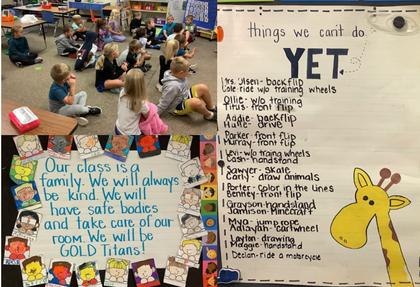 Our class is a
family. We will always
be kind. We will
have safe bodies
and take care of our
room. We will be
GOLD Titans!
things we can't do
YET.
Mrs. Olsen- backflip
Cole- ride w/o training wheels
Ollie- w/o training
Titus- front flip
Addie- backflip
drive
Parker- front flip
Murray- front flip
Levi- w/o training wheels
Cash- handstand
Sawyer- skate
Carly- draw animals
Porter- color in the lines
front flip
Grayson- handstand
Jamison- Minecraft
Mya- jump rope
cartwheel
drawing
Maggie- handstand
Declan- ride a motorcycle